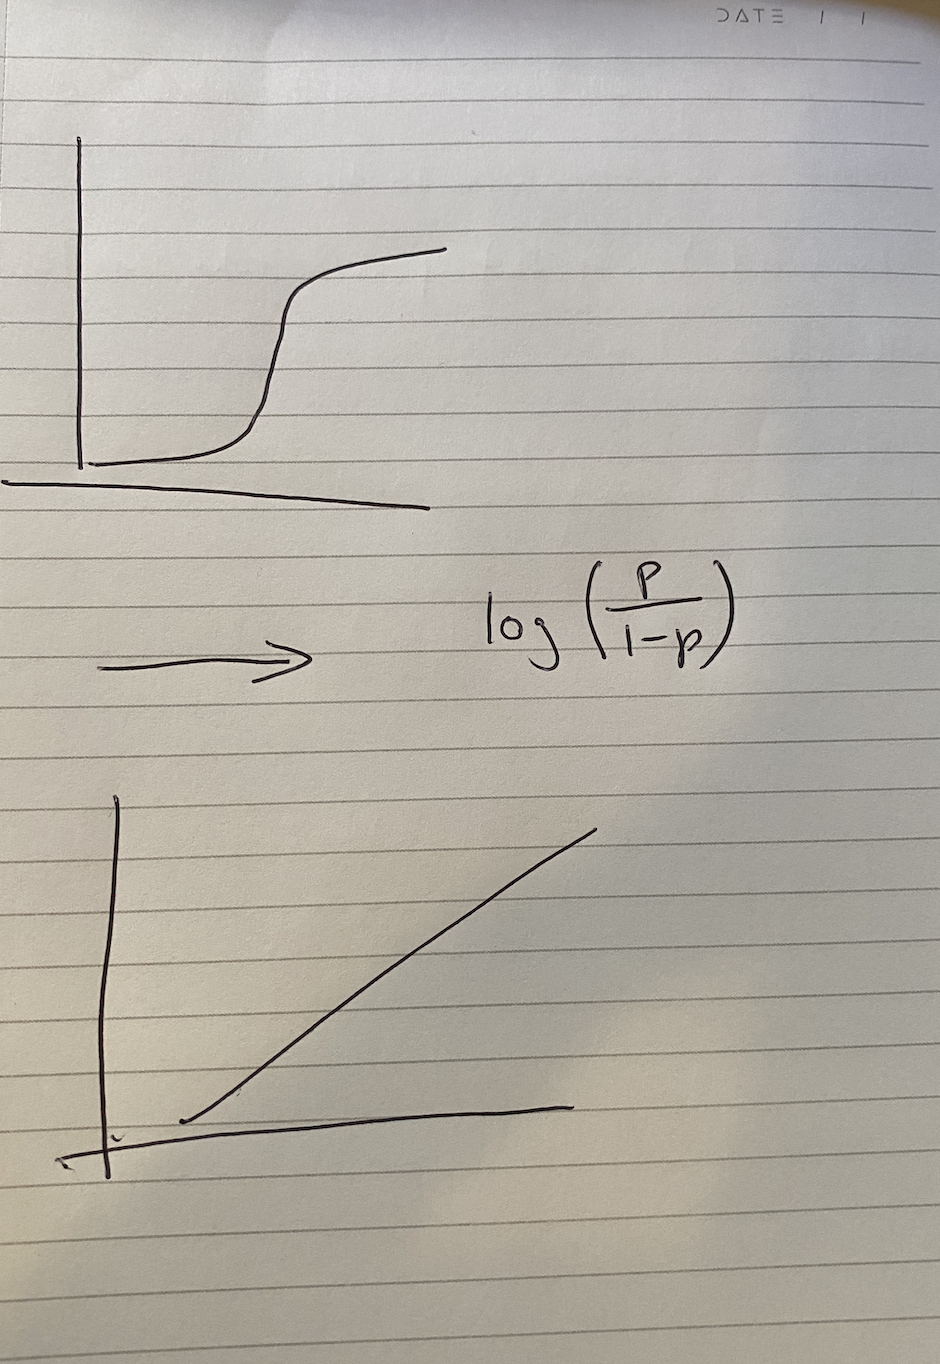 DATE / /
log (p/1-p)